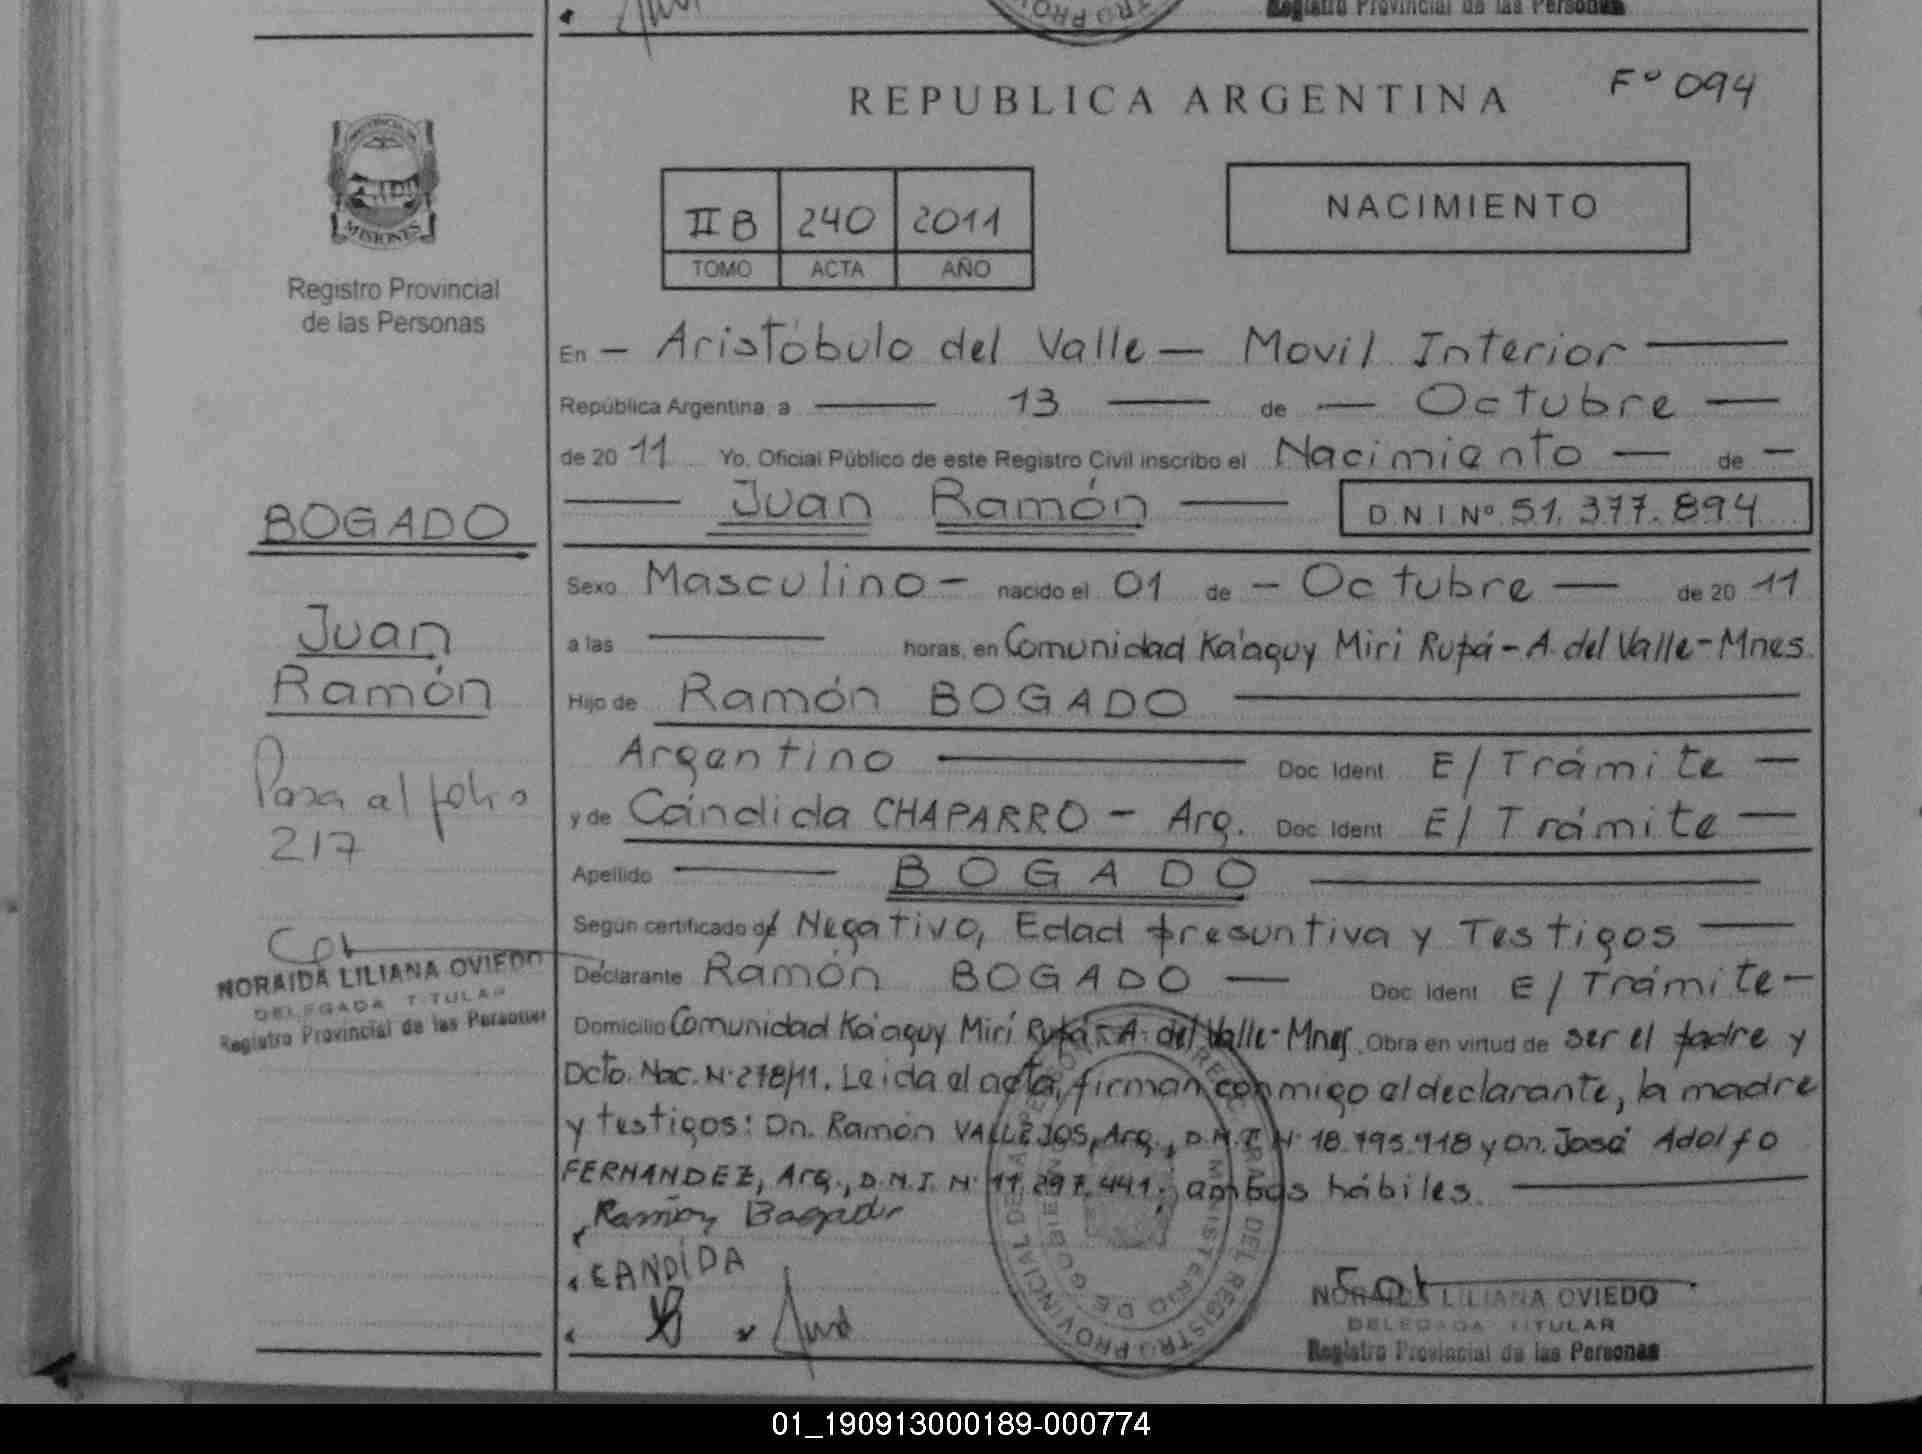 Registro Provincial de las Personas
REPUBLICA ARGENTINA
Fº 094
PROVINCIA DE
MISIONES
Registro Provincial
de las Personas
II B 240 2011
TOMO ACTA AÑO
NACIMIENTO
En — Aristóbulo del Valle — Movil Interior —
República Argentina, a — 13 — de — Octubre —
de 2011 Yo, Oficial Público de este Registro Civil inscribo el Nacimiento — de —
— Juan Ramón — D.N.I Nº 51.377.894
BOGADO
Juan
Ramón
Pasa al folio
217
NORAIDA LILIANA OVIEDO
DELEGADA TITULAR
Registro Provincial de las Personas
Sexo Masculino — nacido el 01 de — Octubre — de 2011
a las — horas, en Comunidad Ka'aguy Miri Rupá - A. del Valle - Mnes.
Hijo de Ramón BOGADO —
Argentino — Doc. Ident. E/ Trámite —
y de Cándida CHAPARRO — Arg. Doc. Ident. E/ Trámite —
Apellido — BOGADO —
Según certificado d/ Negativo, Edad presuntiva y Testigos —
Declarante Ramón BOGADO — Doc. Ident. E/ Trámite —
Domicilio Comunidad Ka'aguy Mirí Rupá - A. del Valle - Mnes. Obra en virtud de ser el padre y
Dcto. Nac. Nº 278/11. Leida el acta, firman conmigo el declarante, la madre
y testigos: Dn. Ramón VALLEJOS, Arg., D.N.I. Nº 18.795.918 y Dn. José Adolfo
FERNANDEZ, Arg., D.N.I. Nº 11.297.441; ambos hábiles. —
Ramón Bogado
CANDIDA
NORAIDA LILIANA OVIEDO
DELEGADA TITULAR
Registro Provincial de las Personas
01_190913000189-000774